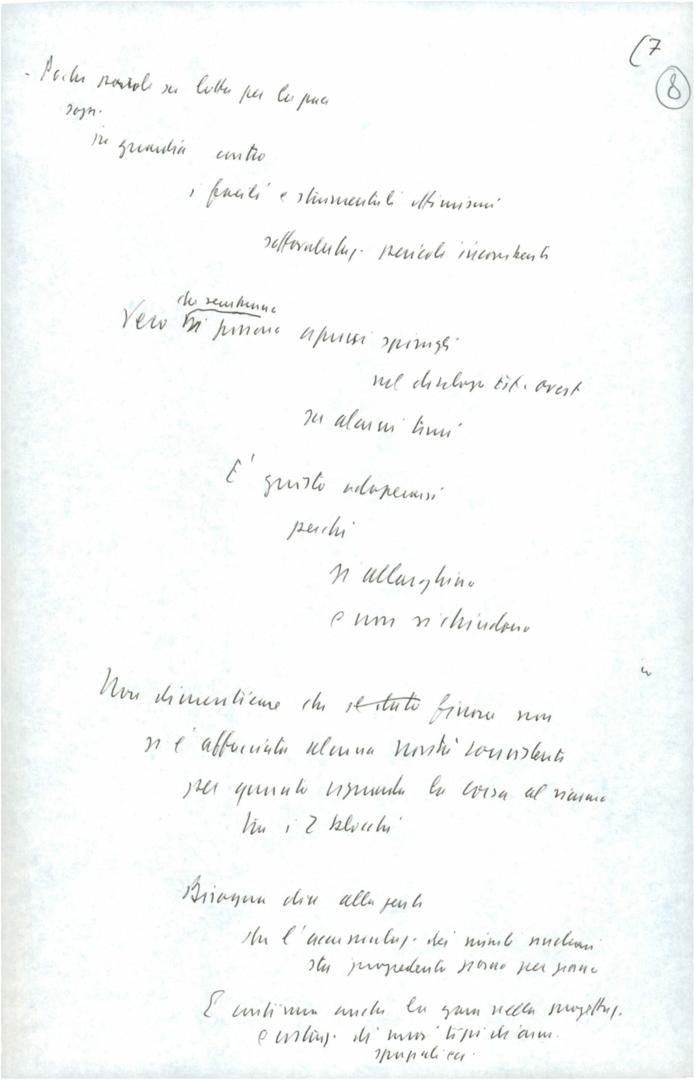 (7
8
- Poche parole su lotta per la pace
sopr.
in guardia contro
i facili e strumentali ottimismi
sottovalutaz. pericoli inconsistenti
che sembrano
Vero si possono aprirsi spiragli
nel dialogo est-ovest
su alcuni temi
E' giusto adoperarsi
perchè
si allarghino
e non si chiudano
Non dimenticare che finora non
si è affacciata alcuna novità consistente
per quanto riguarda la corsa al riarmo
tra i 2 blocchi
Bisogna dire alla gente
che l'accumulaz. dei missili nucleari
sta procedendo giorno per giorno
E continua anche la gara nella progettaz.
e costruz. di nuovi tipi di armi